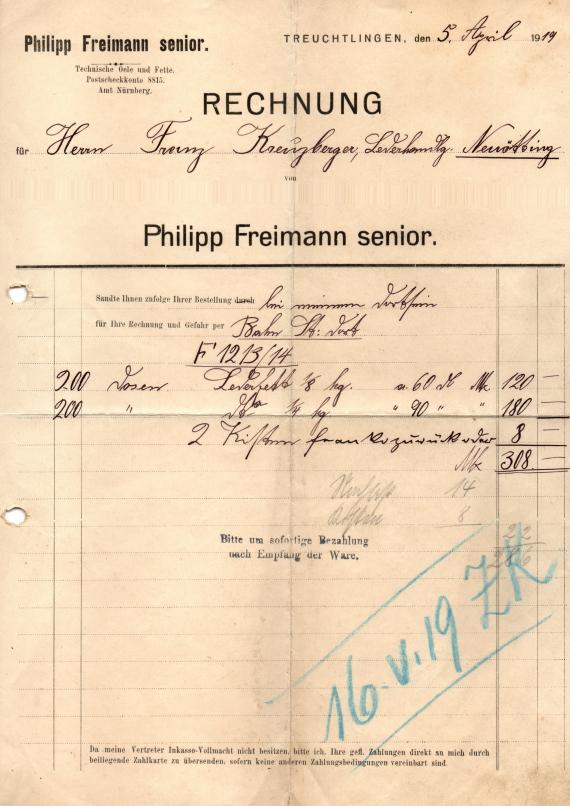 Philipp Freimann senior.
Technische Oele und Fette.
Postscheckkonto 8815.
Amt Nürnberg.
TREUCHTLINGEN, den 5. April 1919
RECHNUNG
für Herrn Franz Kreuzberger, Lederhandlg. Neuötting
von
Philipp Freimann senior.
Sandte Ihnen zufolge Ihrer Bestellung durch bei meinem Dortsein
für Ihre Rechnung und Gefahr per Bahn St: dort
F 1213/14
200 Dosen Lederfett 1/8 kg. a 60 Mk 120 —
200 " dto 1/4 kg " 90 " " 180 —
2 Kisten franko zurück oder 8 —
Mk 308. —
14
8
22
286
Bitte um sofortige Bezahlung
nach Empfang der Ware.
16.V.19
Da meine Vertreter Inkasso-Vollmacht nicht besitzen, bitte ich, Ihre gefl. Zahlungen direkt an mich durch
beiliegende Zahlkarte zu übersenden, sofern keine anderen Zahlungsbedingungen vereinbart sind.